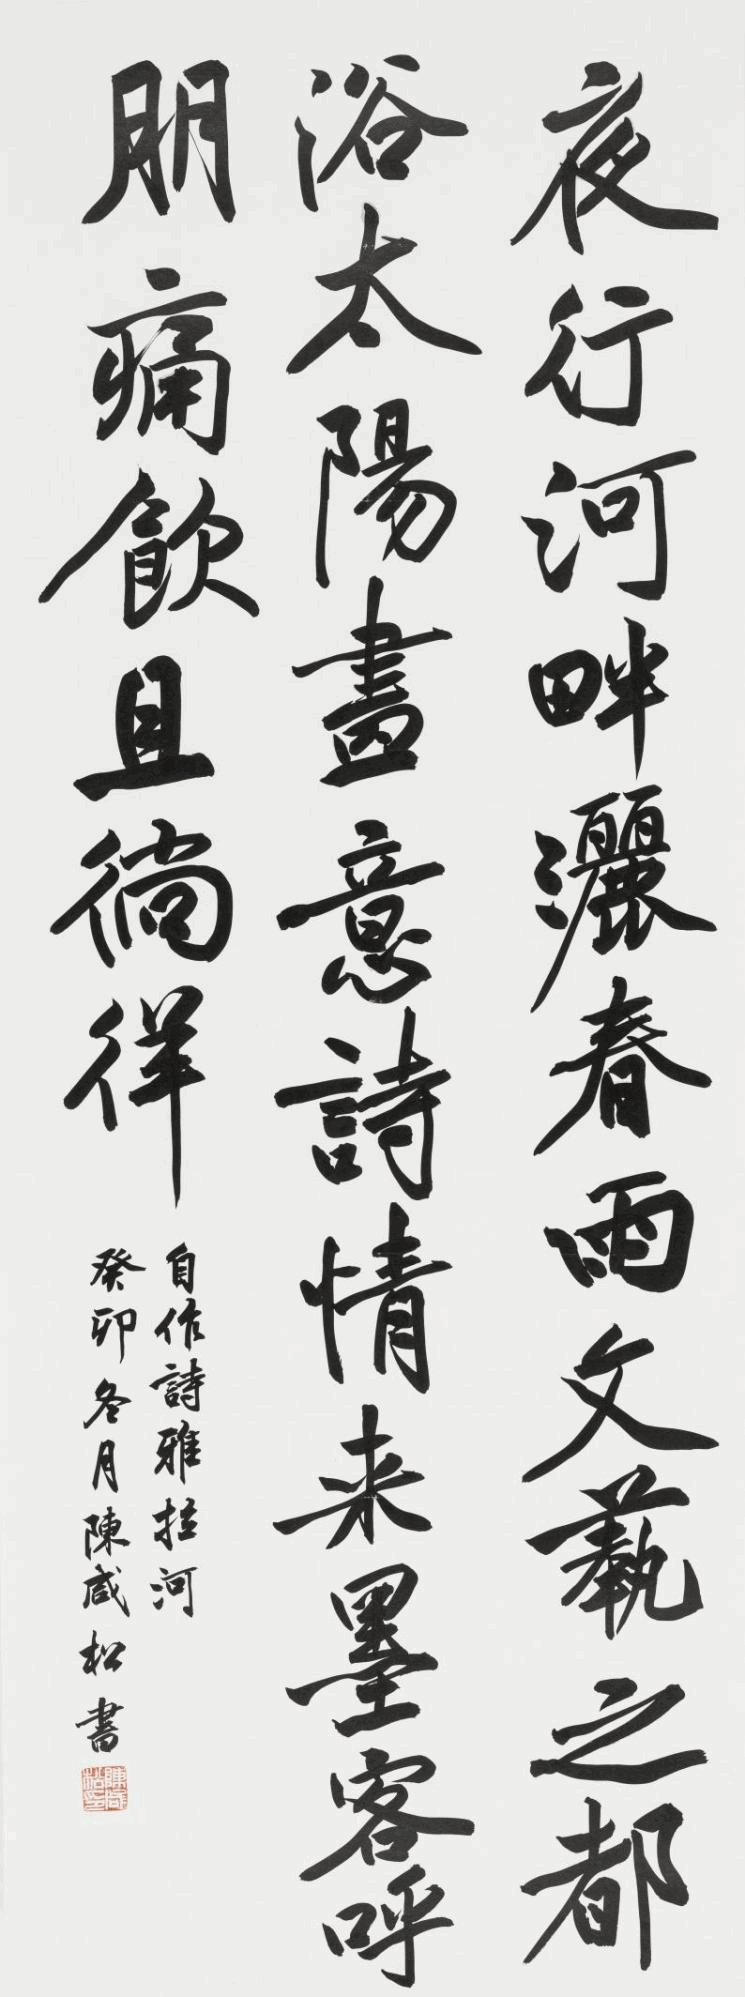 夜行河畔灑春雨文藝之都
浴太陽盡意詩情来墨客呼
朋痛飲且徜徉
自作詩雅拉河
癸卯冬月陳咸松書